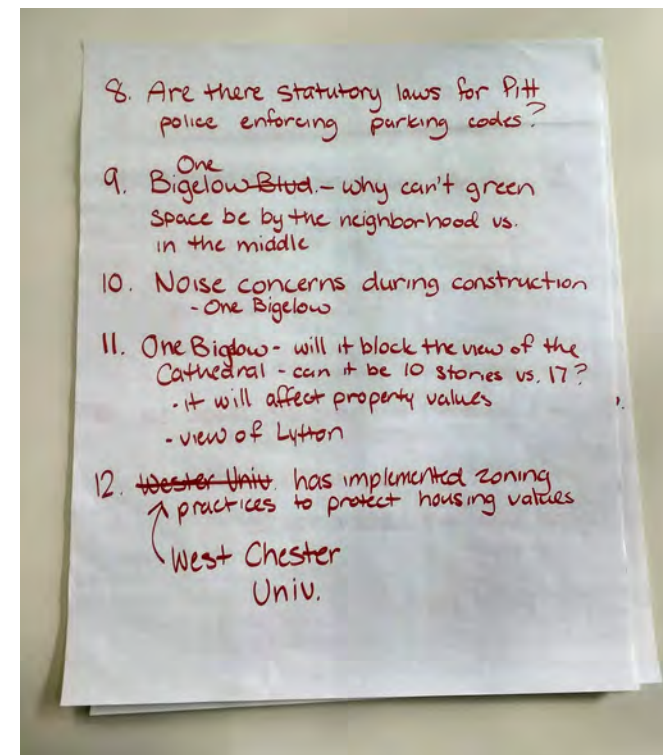 8. Are there statutory laws for Pitt
police enforcing parking codes?
One
9. Bigelow Blvd. - why can't green
space be by the neighborhood vs.
in the middle
10. Noise concerns during construction
- One Bigelow
11. One Biglow - will it block the view of the
Cathedral - can it be 10 stories vs. 17?
- it will affect property values
- view of Lytton
12. Wester Univ. has implemented zoning
practices to protect housing values
West Chester
Univ.